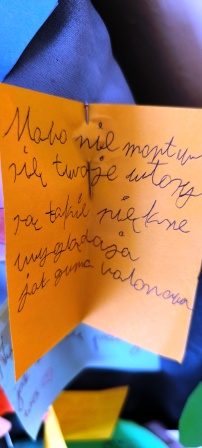 nie martw
się twoje włosy
są takie piękne
wyglądają
jak guma balonowa